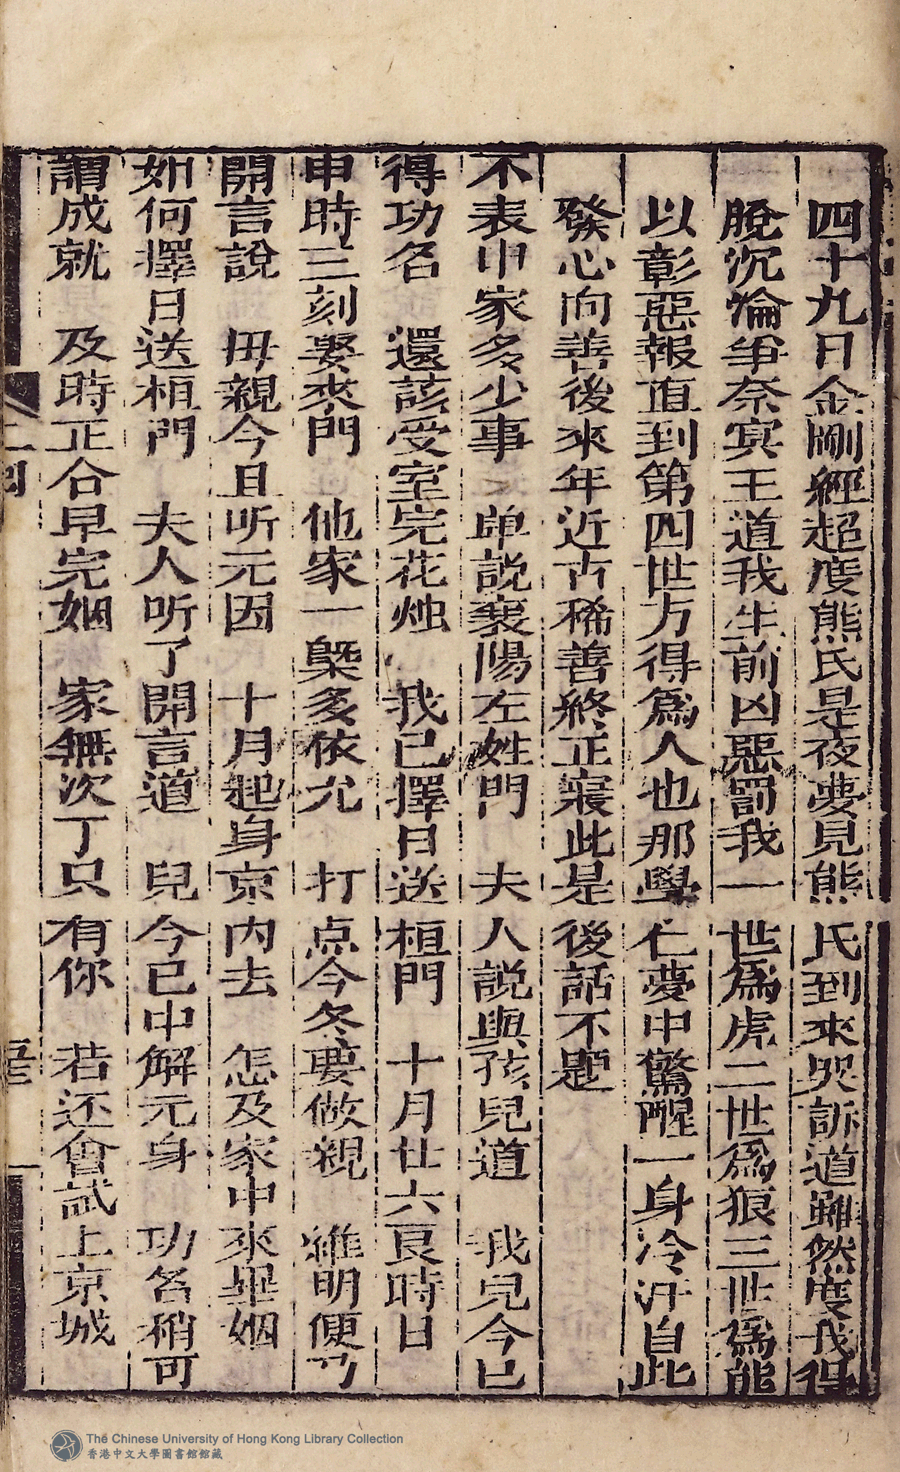 四十九日金剛經超度熊氏是夜夢見熊氏到來哭訴道雖然度我得
脫沉淪爭奈㝠王道我生前凶惡罰我一世爲虎二世爲狼三世爲熊
以彰惡報直到第四世方得爲人也那學仁夢中驚醒一身冷汗自此
發心向善後來年近古稀善終正寢此是後話不題
不表申家多少事　単説襄陽左姓門　夫人説與孩兒道　我兒今已
得功名　還該受室完花烛　我已擇日送桓門　十月廿六良時日
申時三刻娶來門　他家一槩多依允　打点今冬要做親　維明便乃
開言說　毋親今且听元因　十月起身京內去　怎及家中來畢姻
如何擇日送桓門　夫人听了開言道　兒今已中解元身　功名稍可
謂成就　及時正合早完姻　家無次丁只有你　若还會試上京城
The Chinese University of Hong Kong Library Collection
香港中文大學圖書館館藏